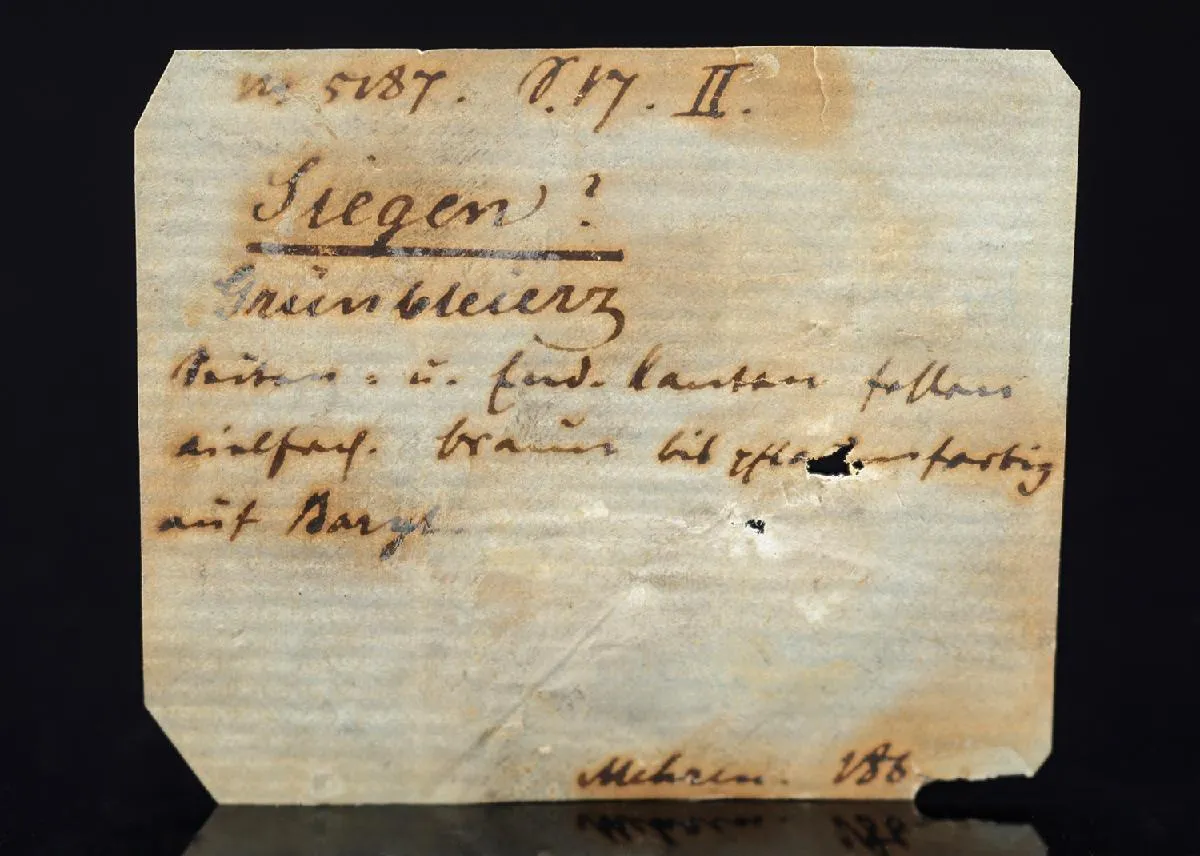 N. 5187. S. 17. II.
Siegen?
Grünbleierz
Seiten- u. End-kanten fehlen
vielfach. braun bis
auf Baryt
Mehren. 186